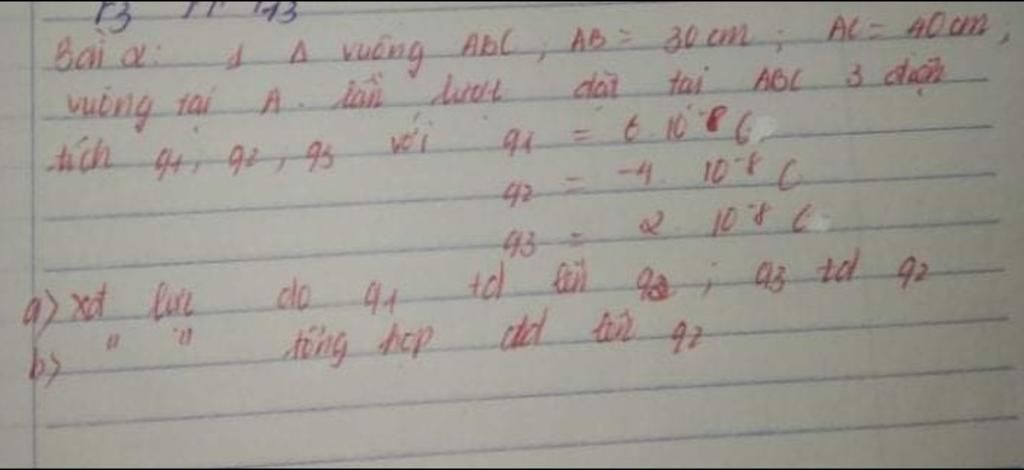 Bài 2: 1 Δ vuông ABC, AB = 30 cm; AC = 40 cm;
vuông tại A. lần lượt đặt tại ABC 3 điện
tích q1, q2, q3 với q1 = 6.10^-8 C
q2 = -4. 10^-8 C
q3 = 2. 10^-8 C
a) xđ lực do q1 td lên q2; q3 td q2
b) " " tổng hợp td lên q2